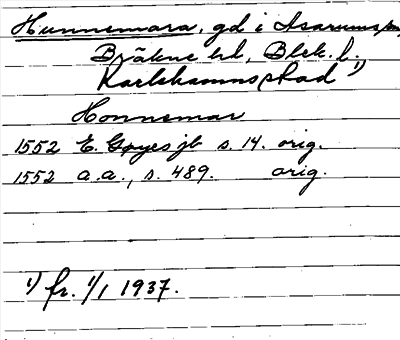 Hunnemara, gd i Asarums sn,
Bräkne hd, Blek. l.
Karlshamns stad 1)
Honnemar
1552 E. Gøyes jb s. 14. orig.
1552 a.a., s. 489. orig.
1) fr. 1/1 1937.